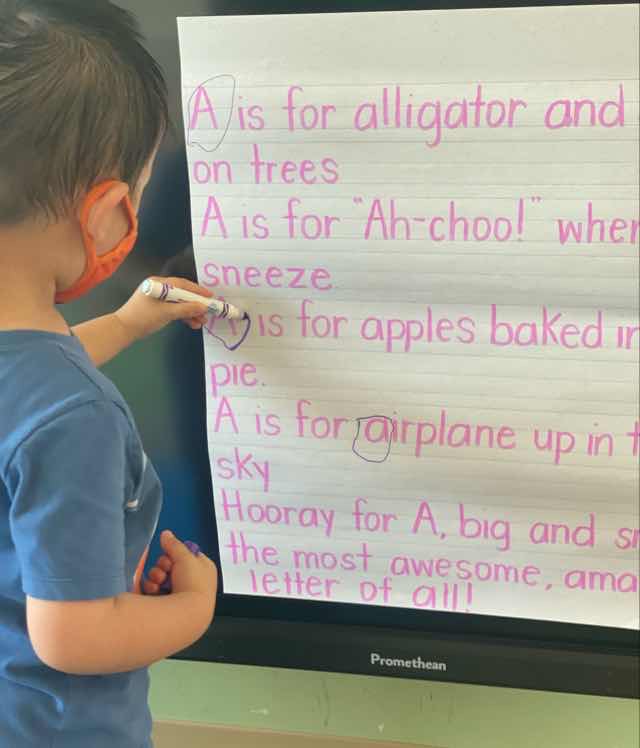 A is for alligator and
on trees
A is for "Ah-choo!"
sneeze.
is for apples baked
pie.
A is for airplane up in
sky
Hooray for A, big and
the most awesome,
letter of all!
Promethean